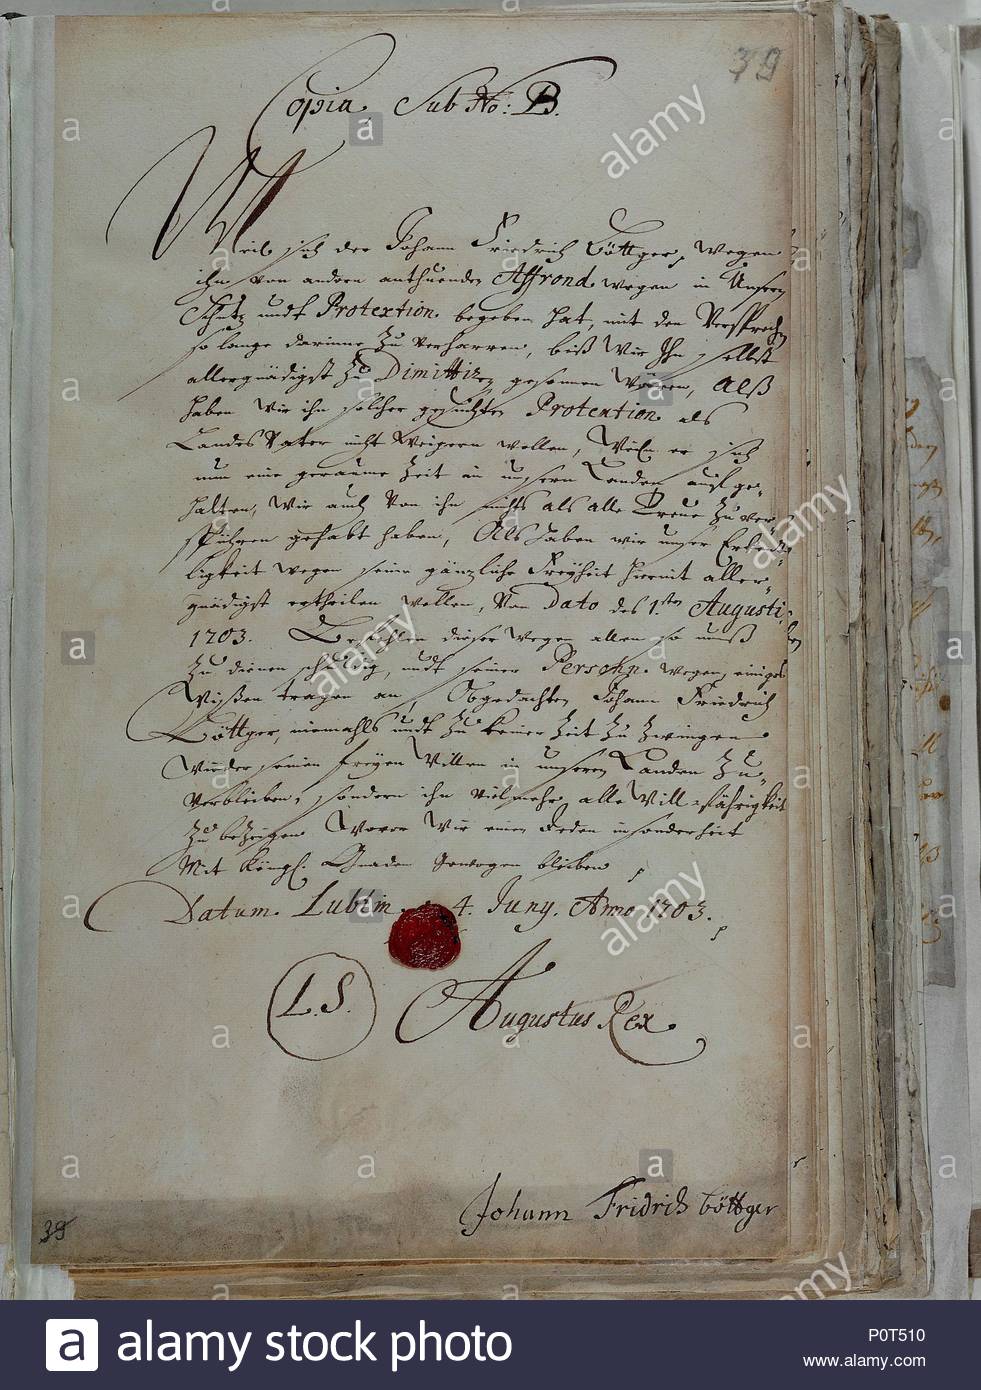 39
Copia, Sub No: B.
Weil sich der Johann Friedrich Böttger, wegen
ihm von andern anthuenden Affrond wegen in Unsern
Schutz undt Protextion begeben hat, mit den Versprechen
so lange darinne zu verharren, biß Wir Ihn selbst
allergnädigst zu Dimittiren gesonnen wären, Alß
haben Wir ihn solcher gesuchten Protextion als
Landes Vater nicht Weigern wollen, Weiln er sich
nun eine geraume Zeit in unsern Landen auf ge-
halten, Wir auch von ihn nichts als alle Treue zu ver-
spühren gehabt haben, Als haben wir unser
wegen seiner gänzliche Freyheit hiermit aller-
gnädigst ertheilen wollen, Von Dato des 1sten Augusti
1703. Befehlen dieser wegen allen so uns
zu dienen schuldig, undt seiner Persohn wegen einiges
Wißen tragen an, Obgedachten Johann Friedrich
Böttger, niemahls undt zu keiner Zeit zu zwingen
Wieder seinen freyen Willen in unsern Landen zu
Verbleiben, sondern ihn vielmehr alle Will-fährigkeit
zu bezeigen Wovor Wir einen Jeden insonderheit
Mit Königl. Gnaden Gewogen bleiben
Datum. Lublin. 4. Juny. Anno 1703.
L.S. Augustus Rex
Johann Fridrich Böttger
39
alamy
a
alamy stock photo
P0T510
www.alamy.com